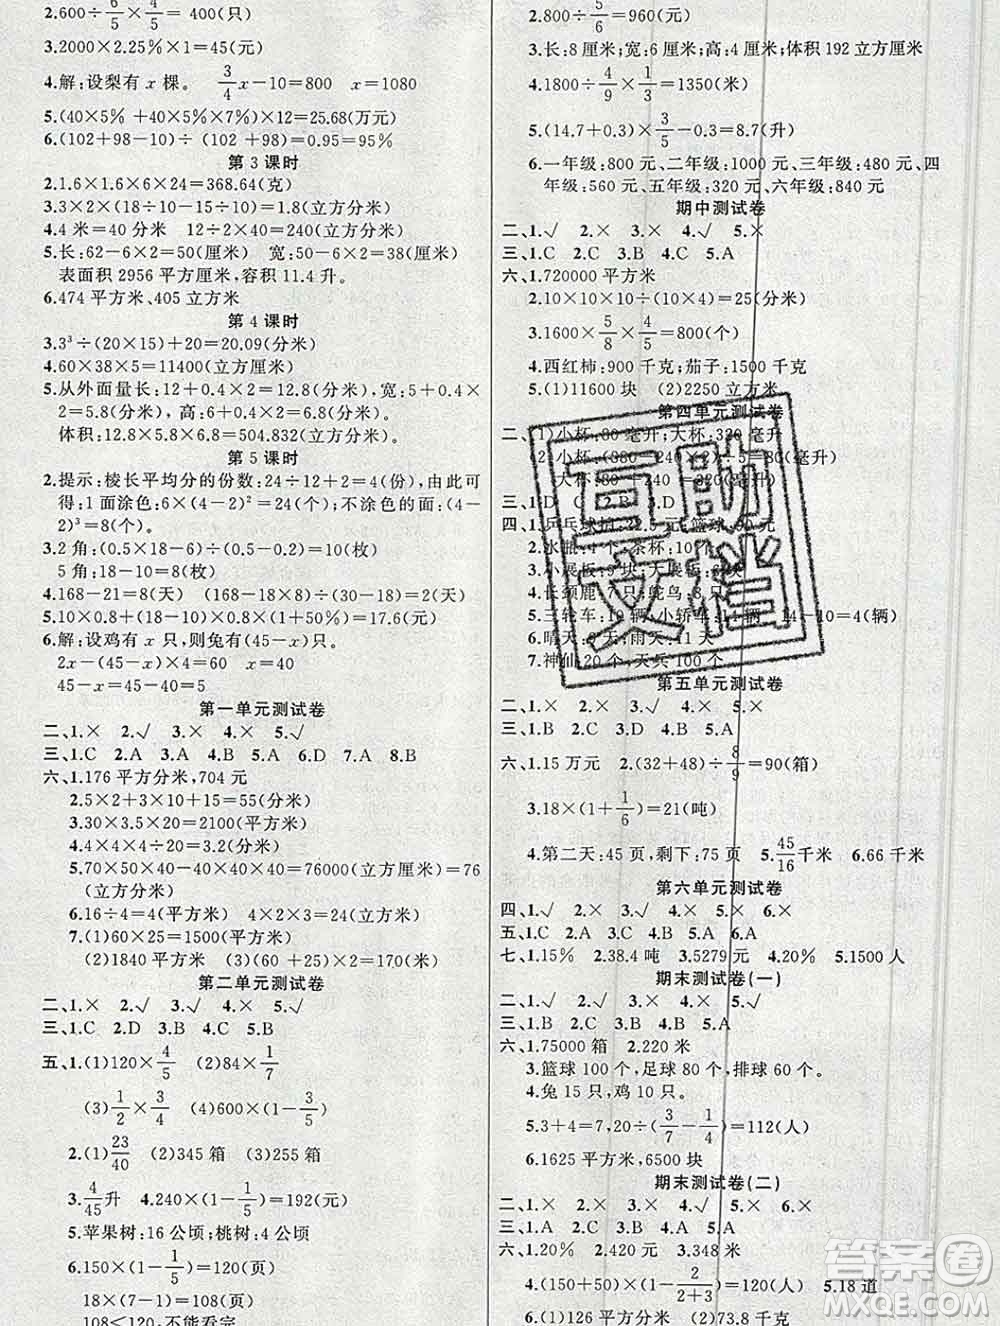 2.600÷6/5×4/5＝400(只)
3.2000×2.25%×1＝45(元)
4.解:设梨有x棵。 3/4x－10＝800 x＝1080
5.(40×5%＋40×5%×7%)×12＝25.68(万元)
6.(102＋98－10)÷(102＋98)＝0.95＝95%
第3课时
2.1.6×1.6×6×24＝368.64(克)
3.3×2×(18÷10－15÷10)＝1.8(立方分米)
4.4米＝40分米 12÷2×40＝240(立方分米)
5.长:62－6×2＝50(厘米) 宽:50－6×2＝38(厘米)
表面积2956平方厘米,容积11.4升。
6.474平方米、405立方米
第4课时
3.3³÷(20×15)＋20＝20.09(分米)
4.60×38×5＝11400(立方厘米)
5.从外面量长:12＋0.4×2＝12.8(分米),宽:5＋0.4
×2＝5.8(分米),高:6＋0.4×2＝6.8(分米)。
体积:12.8×5.8×6.8＝504.832(立方分米)
第5课时
2.提示:棱长平均分的份数:24÷12＋2＝4(份),由此可
得:1面涂色:6×(4－2)²＝24(个);不涂色的面:(4－
2)³＝8(个)。
3.2角:(0.5×18－6)÷(0.5－0.2)＝10(枚)
5角:18－10＝8(枚)
4.168－21＝8(天) (168－18×7)÷(30－18)＝2(天)
5.10×0.8＋(10×2－10×0.8)×0.8×(1＋50%)＝17.6(元)
6.解:设鸡有x只,则兔有(45－x)只。
2x－(45－x)×4＝60 x＝40
45－x＝45－40＝5
第一单元测试卷
二、1.× 2.√ 3.× 4.× 5.√
三、1.C 2.A 3.A 4.B 5.A 6.D 7.A 8.B
六、1.176平方分米,704元
2.5×2＋3×10＋15＝55(分米)
3.30×3.5×20＝2100(平方分米)
4.4×4×4÷20＝3.2(分米)
5.70×50×40－40×40×40＝76000(立方厘米)＝76
(立方分米)
6.16÷4＝4(平方米) 4×2×3＝24(立方米)
7.(1)60×25＝1500(平方米)
(2)1840平方米 (3)(60＋25)×2＝170(米)
第二单元测试卷
二、1.× 2.√ 3.√ 4.× 5.√
三、1.C 2.D 3.B 4.C 5.B
五、1.(1)120×4/5 (2)84×1/7
(3)1/2×3/4 (4)600×(1－3/5)
2.(1)23/40 (2)345箱 (3)255箱
3.4/45升 4.240×(1－1/5)＝192(元)
5.苹果树:16公顷;桃树:24公顷
6.150×(1－1/5)＝120(页)
18×(7－1)＝108(页)
108＜120,不能看完
2.800÷5/6＝960(元)
3.长:8厘米;宽:6厘米;高:4厘米;体积192立方厘米
4.1800÷4/9×1/3＝1350(米)
5.(14.7＋0.3)×3/5－0.3＝8.7(升)
6.一年级:800元、二年级:1000元、三年级:480元、四
年级:560元、五年级:320元、六年级:840元
期中测试卷
二、1.√ 2.× 3.× 4.√ 5.×
三、1.C 2.A 3.B 4.D 5.C
六、1.720000平方米
2.10×10×10÷(10×4)＝25(分米)
3.1600×5/8×4/5＝800(个)
4.西红柿:900千克;茄子:1500千克
5.(1)11600块 (2)2250立方米
第四单元测试卷
二、(1)小杯:80毫升;大杯:320毫升
(2)小杯:(880－240×2)÷5＝80(毫升)
大杯:80＋240＝320(毫升)
三、1.D 2.B
四、1.乒乓球拍:22.5元;篮球:90元
2.水瓶:4个 茶杯:10个
3.小展板:9块;大展板:
4.长颈鹿:7只;鸵鸟:8只
5.三轮车:10辆;小轿车:14辆 24－10＝4(辆)
6.晴天:9天;雨天:11天
7.神仙20个,天兵100个
第五单元测试卷
二、1.× 2.× 3.√ 4.× 5.×
三、1.B 2.D 3.A 4.C 5.B
六、1.15万元 2.(32＋48)÷8/9＝90(箱)
3.18×(1＋1/6)＝21(吨)
4.第二天:45页,剩下:75页 5.45/16千米 6.66千米
第六单元测试卷
四、1.√ 2.× 3.√ 4.× 5.× 6.×
五、1.C 2.A 3.B 4.A 5.A 6.A
七、1.15% 2.38.4吨 3.5279元 4.20% 5.1500人
期末测试卷(一)
二、1.√ 2.× 3.× 4.× 5.√
三、1.B 2.B 3.A 4.C 5.C
六、1.75000箱 2.220米
3.篮球100个,足球80个,排球60个。
4.兔15只,鸡10只。
5.3＋4＝7,20÷(3/7－1/4)＝112(人)
6.1625平方米,6500块
期末测试卷(二)
二、1.× 2.× 3.√ 4.× 5.√ 6.×
三、1.A 2.A 3.C 4.C 5.D
六、1.20% 2.420元 3.348米
4.(150＋50)×(1－2/(2＋3))＝120(人) 5.18道
6.(1)126平方分米 (2)73.8千克
互助
文档
答案圈
MXQE.COM